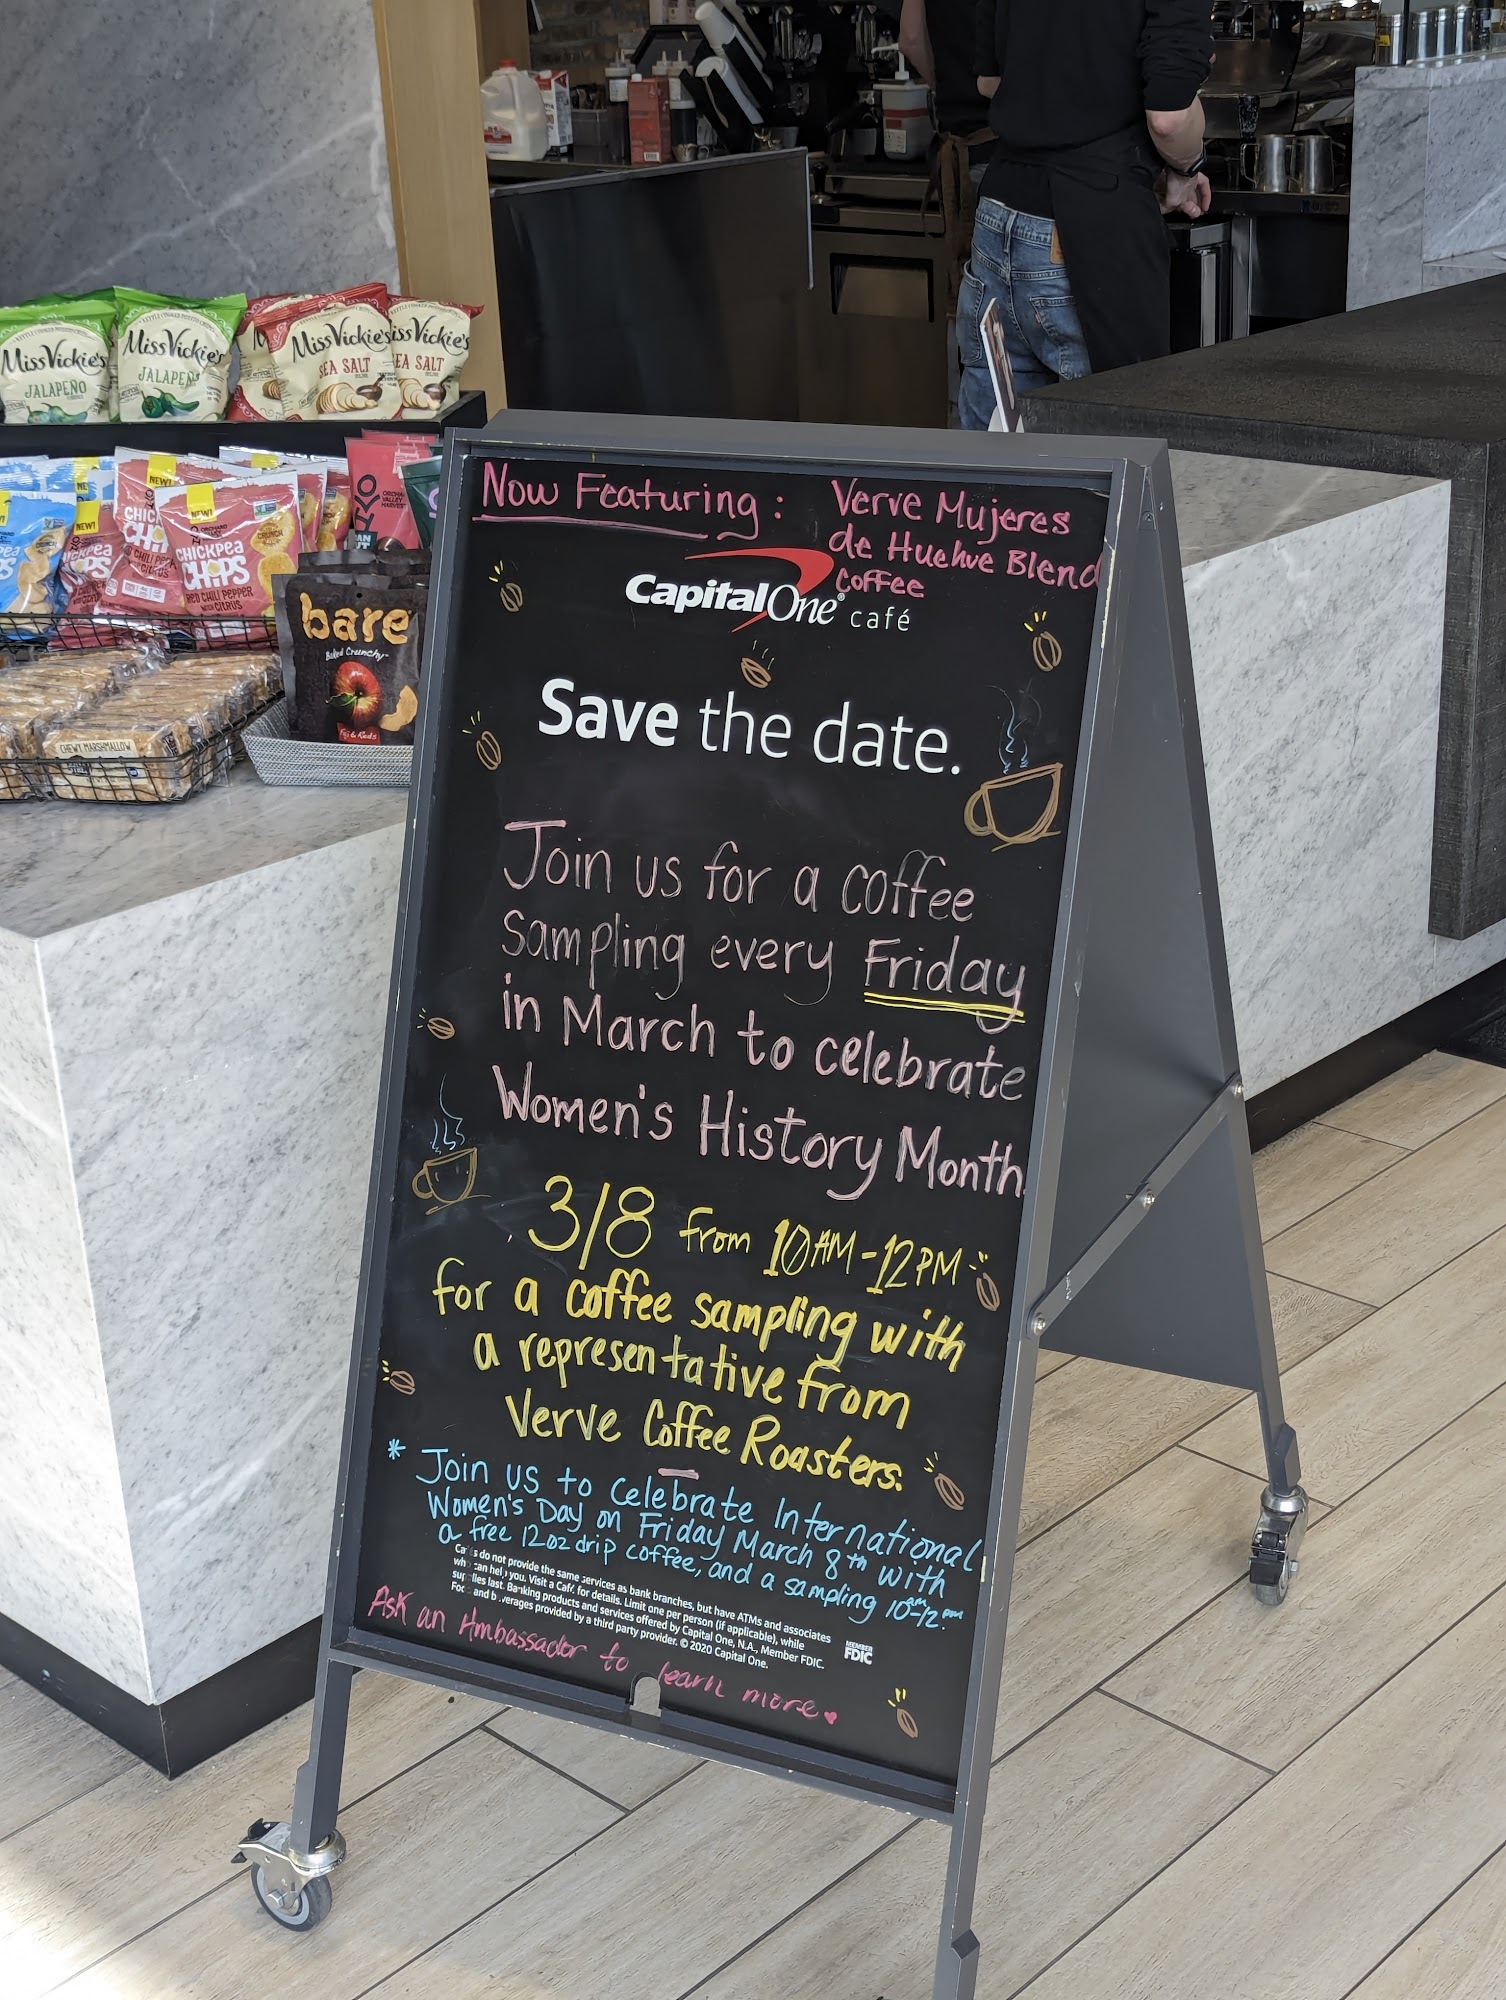 Miss Vickie's
JALAPEÑO
Miss Vickie's
JALAPEÑO
Miss Vickie's
SEA SALT
iss Vickie's
EA SALT
NEW!
NEW!
NEW!
CHICKPEA
CHIPS
RED CHILI PEPPER
WITH CITRUS
bare
Baked Crunchy
Fuji & Reds
CHEWY MARSHMALLOW
Now Featuring: Verve Mujeres
de Huehue Blend
Coffee
Capital One® café
Save the date.
Join us for a coffee
sampling every Friday
in March to celebrate
Women's History Month.
3/8 from 10AM-12PM
for a coffee sampling with
a representative from
Verve Coffee Roasters.
* Join us to celebrate International
Women's Day on Friday March 8th with
a free 12oz drip coffee, and a sampling 10am-12pm.
Ca s do not provide the same services as bank branches, but have ATMs and associates
wh can help you. Visit a Café for details. Limit one per person (if applicable), while
sup lies last. Banking products and services offered by Capital One, N.A., Member FDIC.
Foo and b verages provided by a third party provider. © 2020 Capital One.
MEMBER
FDIC
Ask an Ambassador to learn more ♥